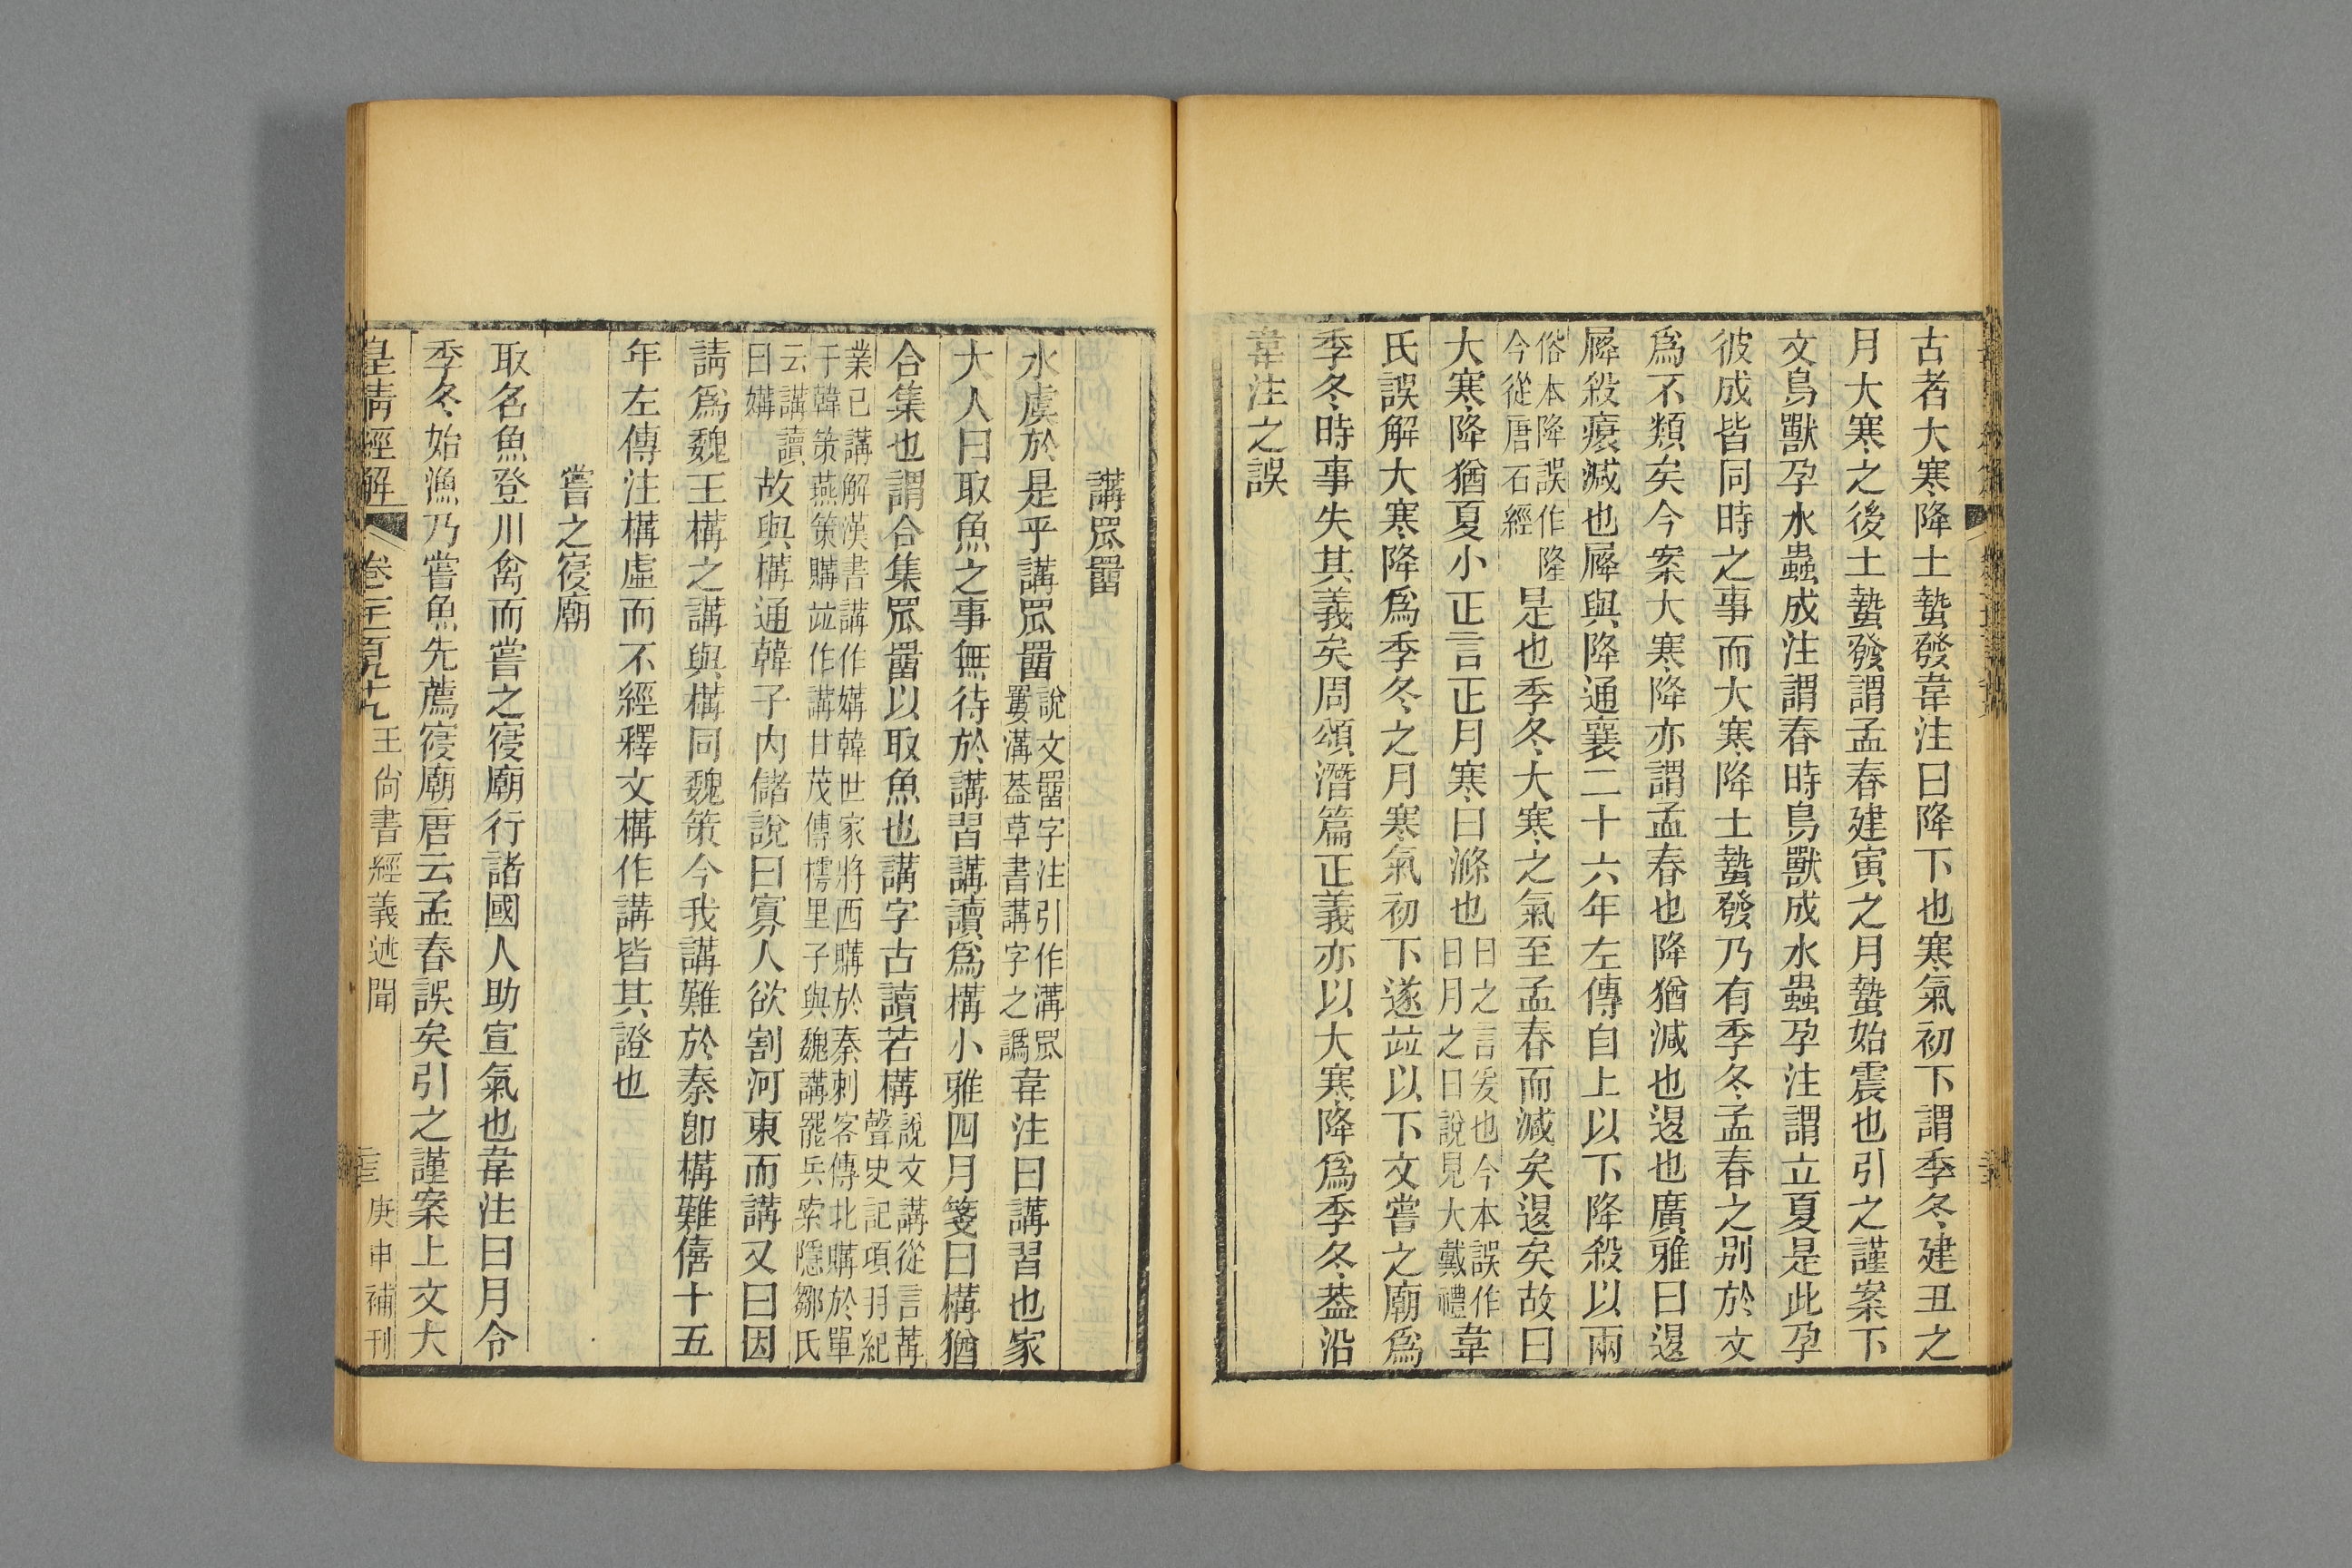 古者大寒降土蟄發韋注曰降下也寒氣初下謂季冬建丑之
月大寒之後土蟄發謂孟春建寅之月蟄始震也引之謹案下
文鳥獸孕水蟲成注謂春時鳥獸成水蟲孕注謂立夏是此孕
彼成皆同時之事而大寒降土蟄發乃有季冬孟春之別於文
為不類矣今案大寒降亦謂孟春也降猶減也退也廣雅曰退
屖殺瘝減也屖與降通襄二十六年左傳自上以下降殺以兩
俗本降誤作隆
今從唐石經
是也季冬大寒之氣至孟春而減矣退矣故曰
大寒降猶夏小正言正月寒日滌也
日之言爰也今本誤作
日月之日說見大戴禮
韋
氏誤解大寒降為季冬之月寒氣初下遂竝以下文嘗之廟為
季冬時事失其義矣周頌潛篇正義亦以大寒降為季冬葢沿
韋注之誤
講罛罶
水虞於是乎講罛罶
說文罶字注引作溝罛
罶溝葢草書講字之譌
韋注曰講習也家
大人曰取魚之事無待於講習講讀為構小雅四月箋曰構猶
合集也謂合集罛罶以取魚也講字古讀若構
說文講從言冓
聲史記項羽紀
業已講解漢書講作媾韓世家將西購於秦刺客傳北購於單
于韓策燕策購竝作講甘茂傳樗里子與魏講罷兵索隱鄒氏
云講讀
曰媾
故與構通韓子內儲說曰寡人欲割河東而講又曰因
請為魏王構之講與構同魏策今我講難於秦卽構難僖十五
年左傳注構虛而不經釋文構作講皆其證也
嘗之寑廟
取名魚登川禽而嘗之寑廟行諸國人助宣氣也韋注曰月令
季冬始漁乃嘗魚先薦寑廟唐云孟春誤矣引之謹案上文大
皇清經解
卷一千二百九十九
王尚書經義述聞
庚申補刊